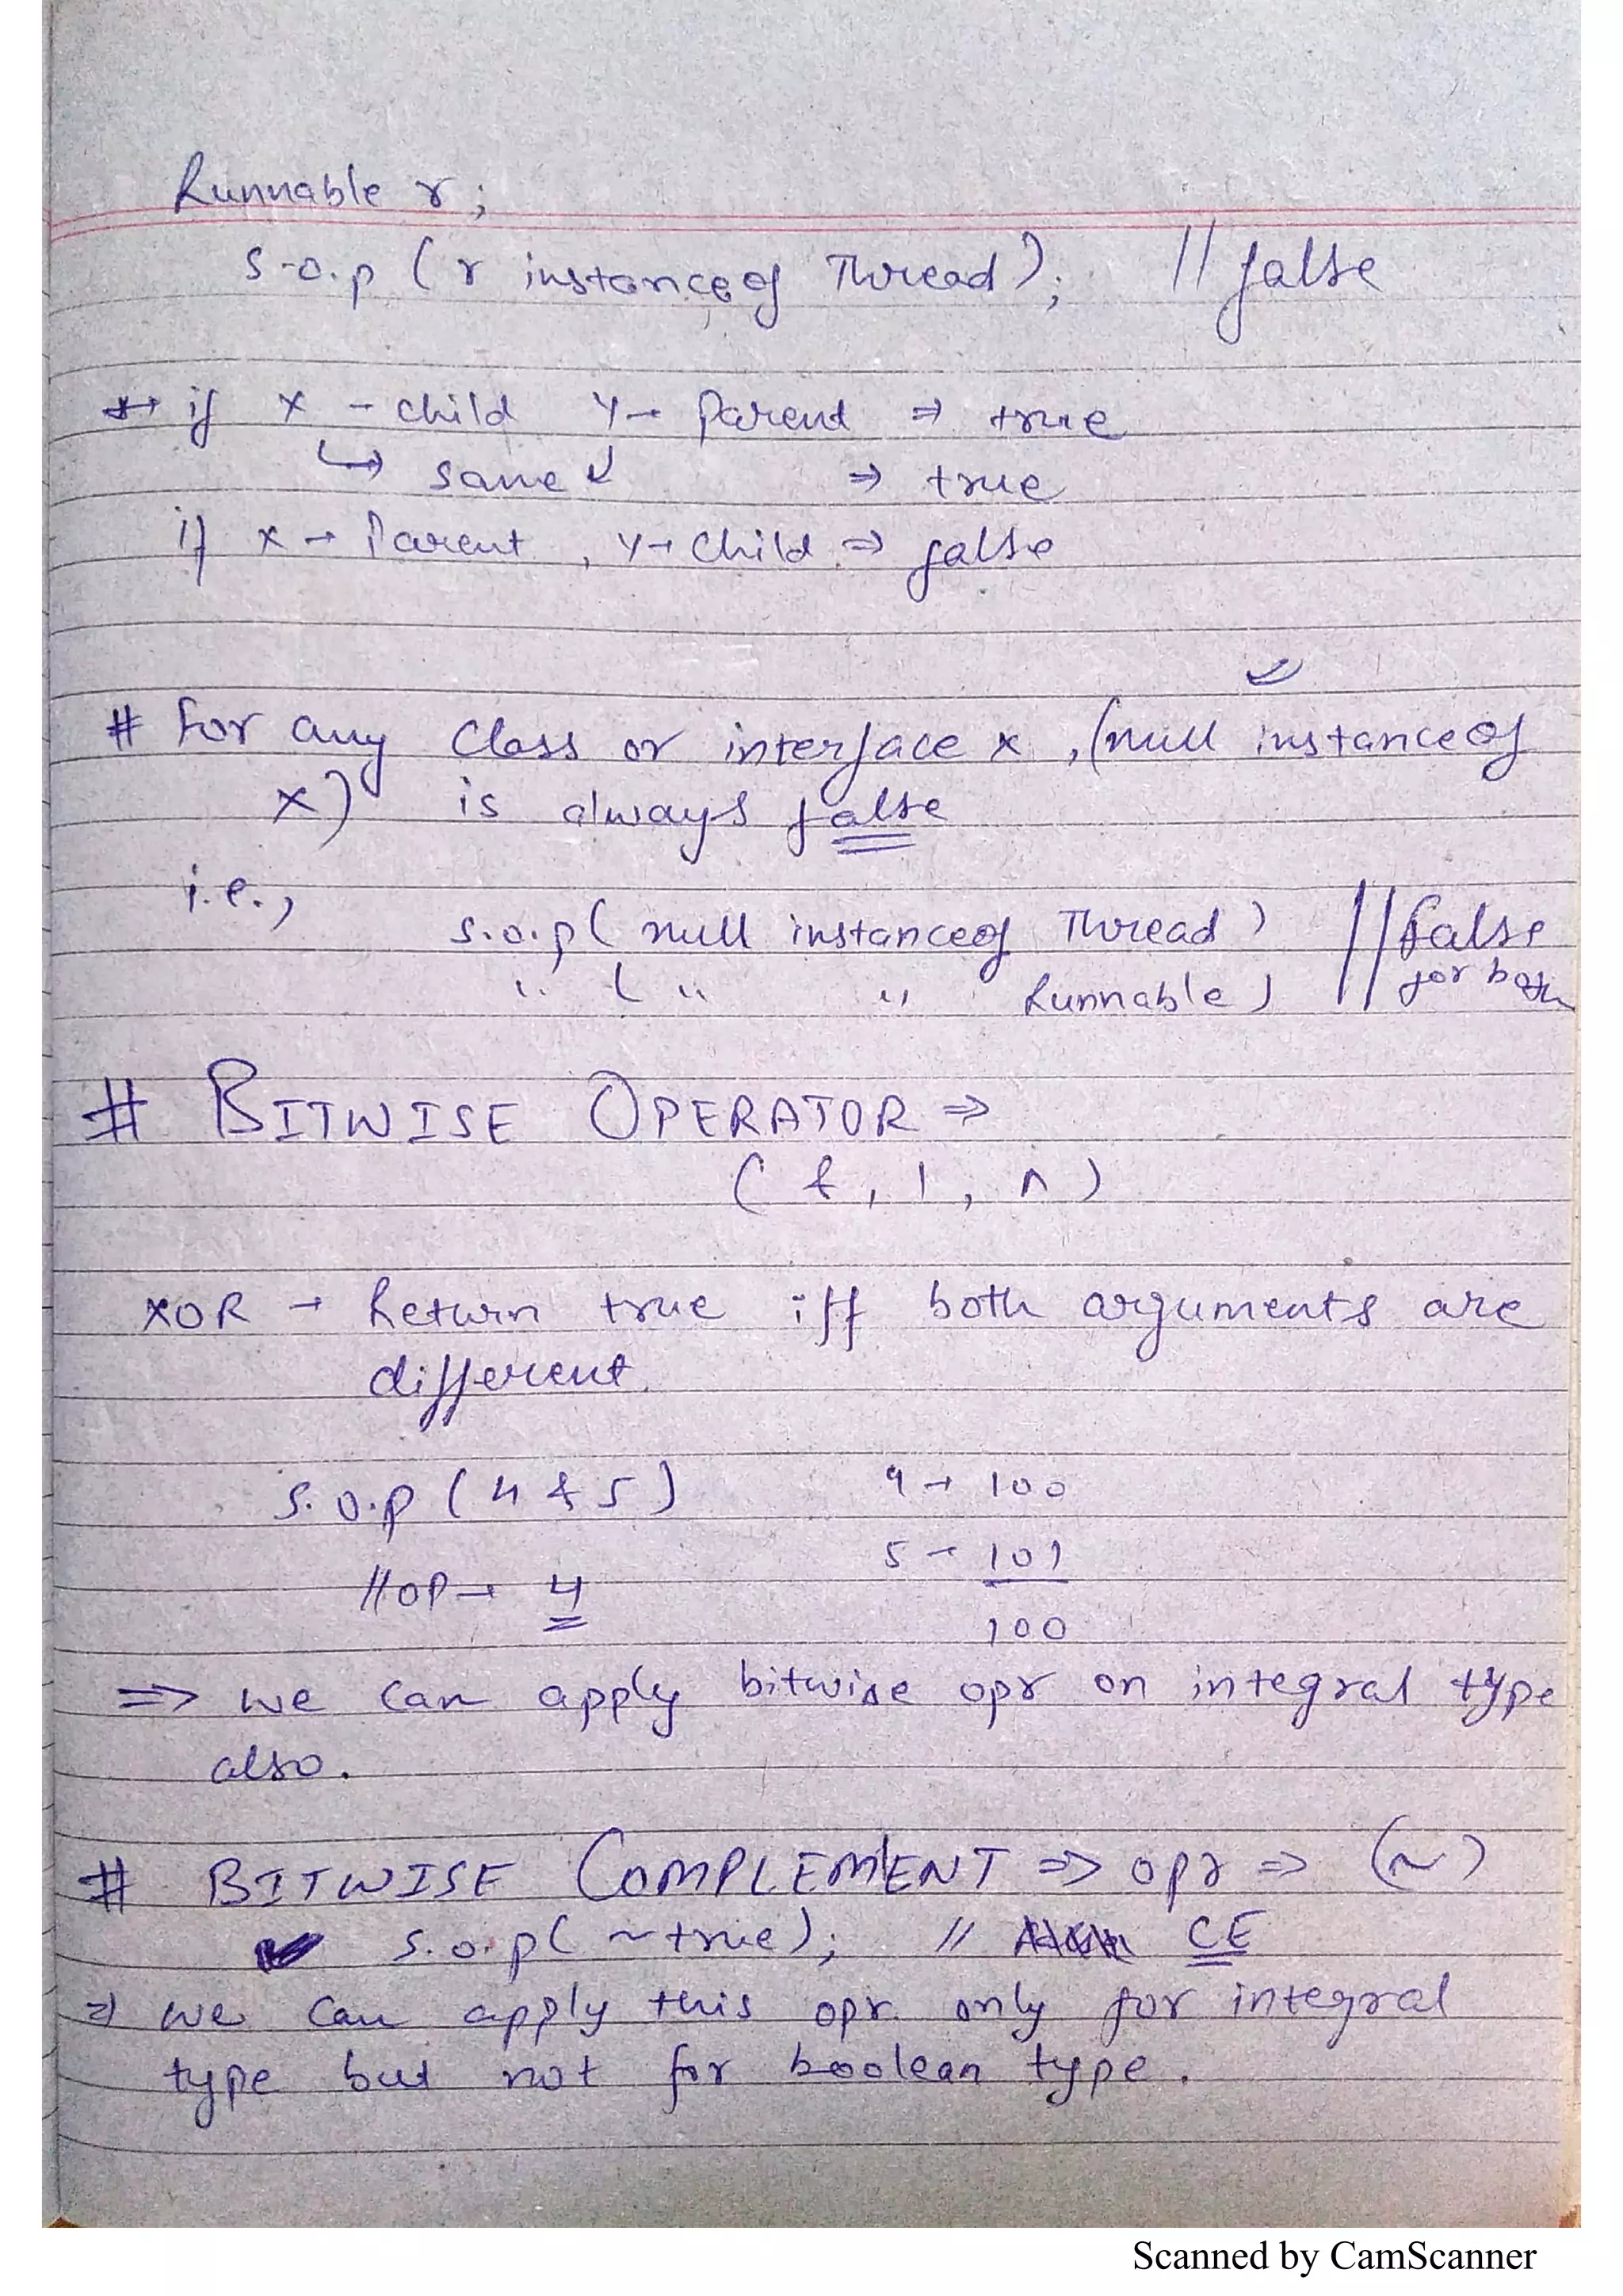 Runnable r;
S.o.p (r instanceof Thread); // false
** if x - child y → Parent ⇒ true
↳ same ↲ ⇒ true
if x → Parent, y → Child ⇒ false
# For any Class or interface x, (null instanceof
x) is always false
i.e.,
S.o.p( null instanceof Thread ) // false
" ( " " Runnable ) for both
# BITWISE OPERATOR ⇒
( &, |, ^ )
XOR → Return true iff both arguments are
different.
S.o.p (4 & 5) 4 → 100
5 → 101
// OP → 4
100
⇒ we can apply bitwise opr on integral type
also.
# BITWISE COMPLEMENT ⇒ opr ⇒ (~)
S.o.p( ~true); // CE
⇒ we can apply this opr. only for integral
type but not for boolean type.
Scanned by CamScanner